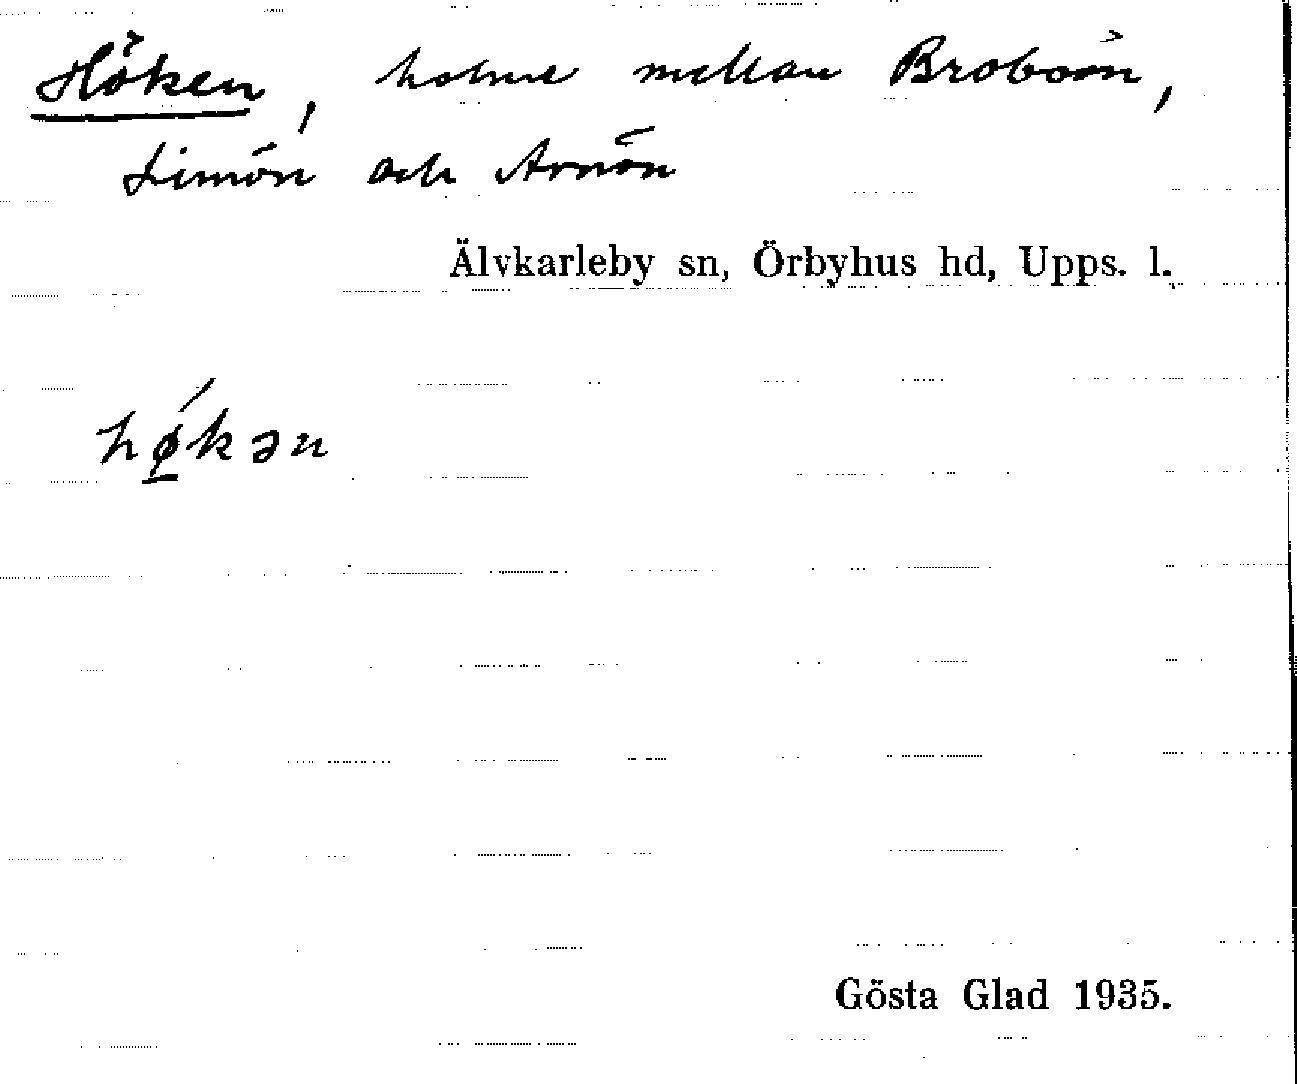 Höken, holme mellan Broboön,
Limön och Arnön
Älvkarleby sn, Örbyhus hd, Upps. l.
hǿ̱kən
Gösta Glad 1935.